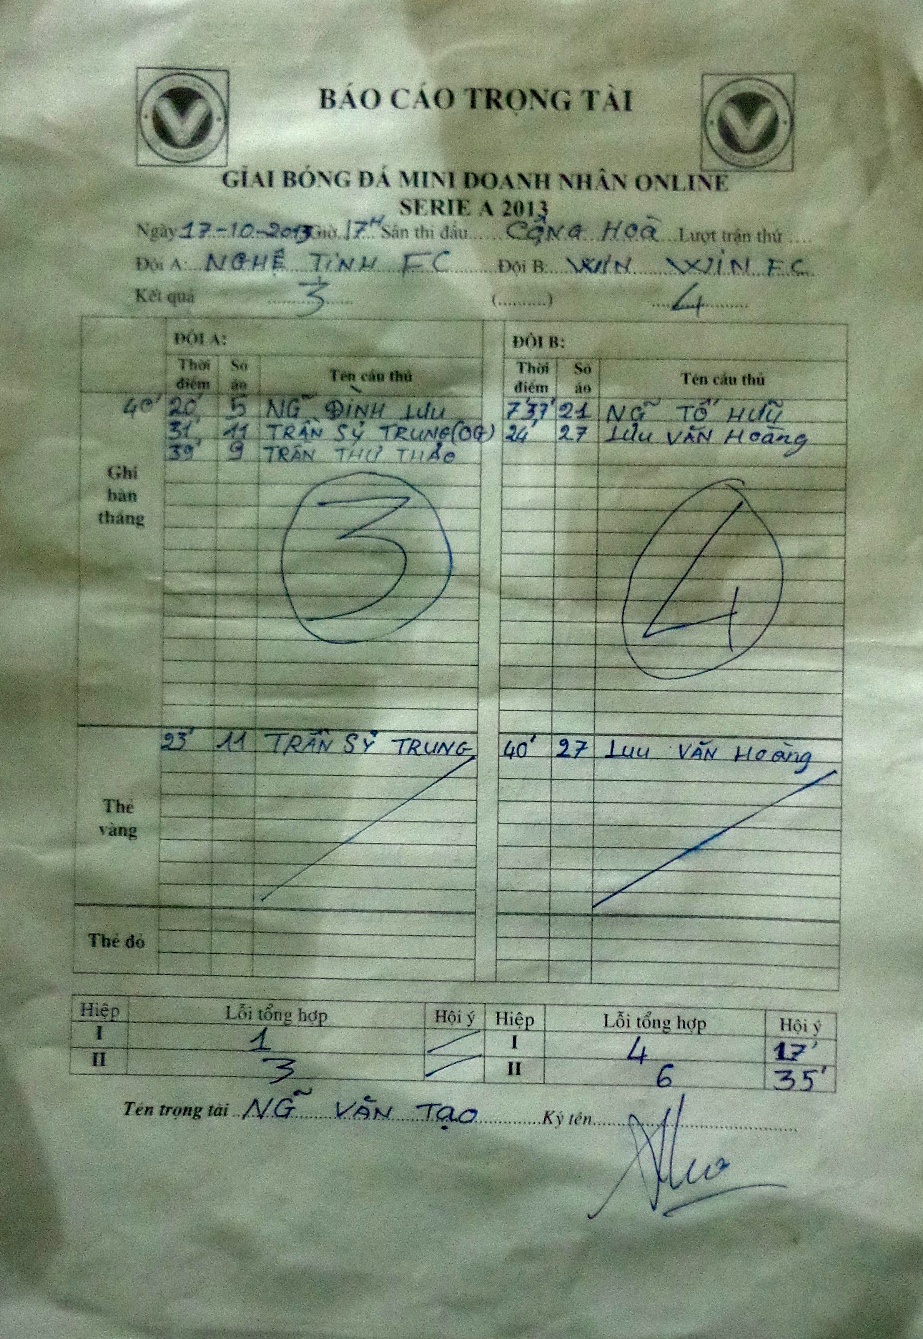 BÁO CÁO TRỌNG TÀI
GIẢI BÓNG ĐÁ MINI DOANH NHÂN ONLINE
SERIE A 2013
Ngày 17-10-2013 Giờ 17H Sân thi đấu CỘNG HOÀ Lượt trận thứ
Đội A: NGHỆ TĨNH FC Đội B: WIN WIN FC
Kết quả 3 (..........) 4
ĐỘI A: ĐỘI B:
Thời điểm Số áo Tên cầu thủ Thời điểm Số áo Tên cầu thủ
40' 20' 5 NGÕ ĐÌNH LƯU 7' 37' 21 NGÕ TỐ HỮU
31' 11 TRẦN SỸ TRUNG (OG) 24' 27 LƯU VĂN HOÀNG
39' 9 TRẦN THƯ THẢO
Ghi bàn thắng
3 4
Thẻ vàng
23' 11 TRẦN SỸ TRUNG 40' 27 LƯU VĂN HOÀNG
Thẻ đỏ
Hiệp Lỗi tổng hợp Hội ý Hiệp Lỗi tổng hợp Hội ý
I 1 I 4 17'
II 3 II 6 35'
Tên trọng tài NGÕ VĂN TẠO Ký tên